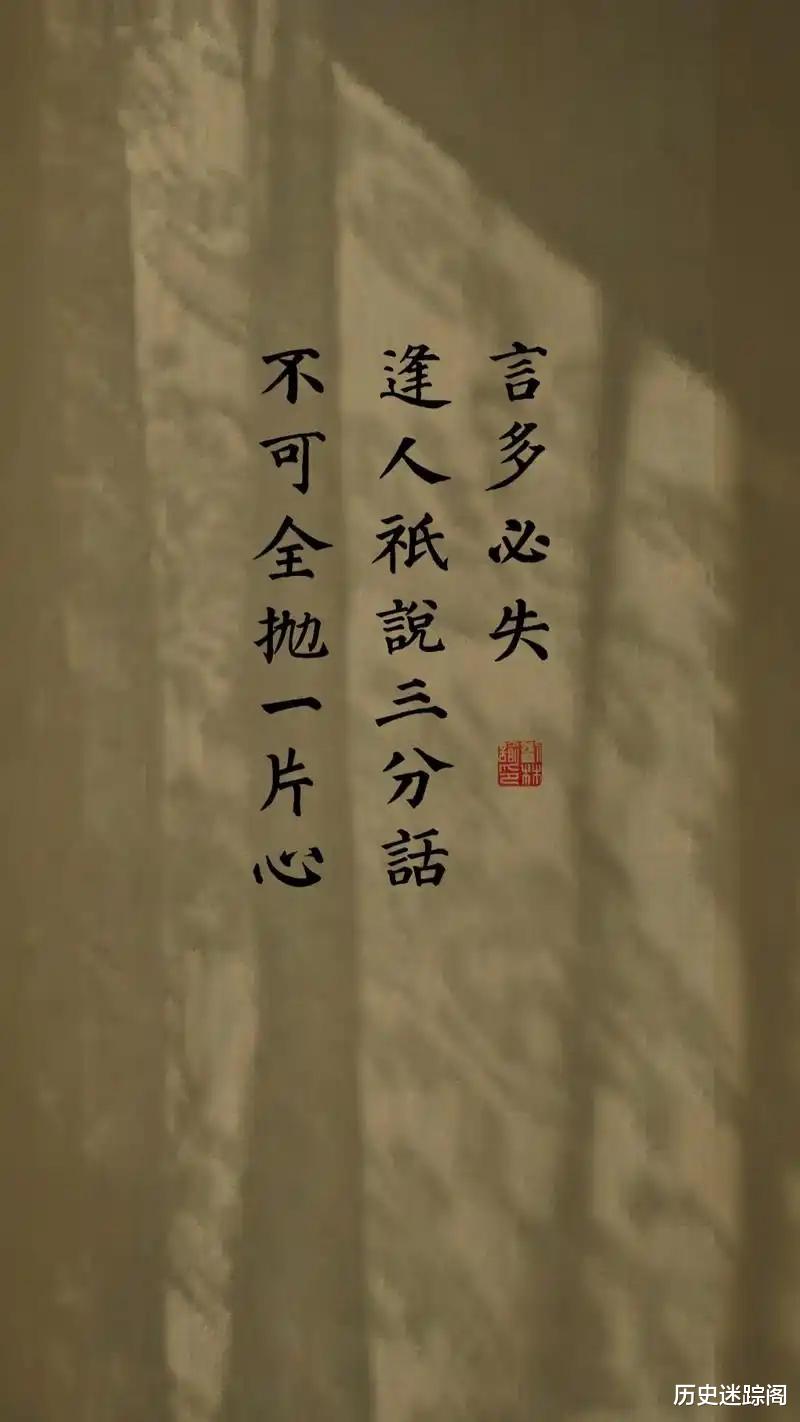 言多必失
逢人祇說三分話
不可全抛一片心
历史迷踪阁